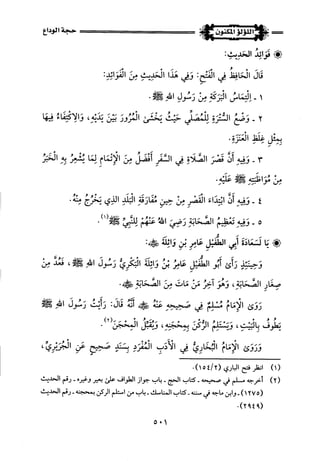 اللؤلؤ المكنون
حجة الوداع
فَوَائِدُ الْحَدِيثِ:
قَالَ الْحَافِظُ فِي الْفَتْحِ: وَفِي هَذَا الْحَدِيثِ مِنَ الْفَوَائِدِ:
١ - اِلْتِمَاسُ الْبَرَكَةِ مِنْ رَسُولِ اللهِ ﷺ.
٢ - وَضْعُ السُّتْرَةِ لِلْمُصَلِّي حَيْثُ يَخْشَى الْمُرُورَ بَيْنَ يَدَيْهِ، وَالِاكْتِفَاءُ فِيهَا
بِمِثْلِ غِلَظِ الْعَنَزَةِ.
٣ - وَفِيهِ أَنَّ قَصْرَ الصَّلَاةِ فِي السَّفَرِ أَفْضَلُ مِنَ الْإِتْمَامِ لِمَا يُشْعِرُ بِهِ الْخَبَرُ
مِنْ مُوَاظَبَتِهِ ﷺ عَلَيْهِ.
٤ - وَفِيهِ أَنَّ ابْتِدَاءَ الْقَصْرِ مِنْ حِينِ مُفَارَقَةِ الْبَلَدِ الَّذِي يَخْرُجُ مِنْهُ.
٥ - وَفِيهِ تَعْظِيمُ الصَّحَابَةِ رَضِيَ اللهُ عَنْهُمْ لِلنَّبِيِّ ﷺ(١).
يَا لَسَعَادَةَ أَبِي الطُّفَيْلِ عَامِرِ بْنِ وَاثِلَةَ ﷺ:
وَحِينَئِذٍ رَأَى أَبُو الطُّفَيْلِ عَامِرُ بْنُ وَاثِلَةَ الْبَكْرِيُّ رَسُولَ اللهِ ﷺ، فَعُدَّ مِنْ
صِغَارِ الصَّحَابَةِ، وَهُوَ آخِرُ مَنْ مَاتَ مِنَ الصَّحَابَةِ ﷺ.
رَوَى الْإِمَامُ مُسْلِمٌ فِي صَحِيحِهِ عَنْهُ ﷺ أَنَّهُ قَالَ: رَأَيْتُ رَسُولَ اللهِ ﷺ
يَطُوفُ بِالْبَيْتِ، وَيَسْتَلِمُ الرُّكْنَ بِمِحْجَنِهِ، وَيُقَبِّلُ الْمِحْجَنَ(٢).
وَرَوَى الْإِمَامُ الْبُخَارِيُّ فِي الْأَدَبِ الْمُفْرَدِ بِسَنَدٍ صَحِيحٍ عَنِ الْجُرَيْرِيِّ،
(١) انظر فتح الباري (١٥٤/٢).
(٢) أخرجه مسلم في صحيحه - كتاب الحج - باب جواز الطواف على بعير وغيره - رقم الحديث
(١٢٧٥) - وابن ماجه في سننه - كتاب المناسك - باب من استلم الركن بمحجنه - رقم الحديث
(٢٩٤٩).
٥٠١